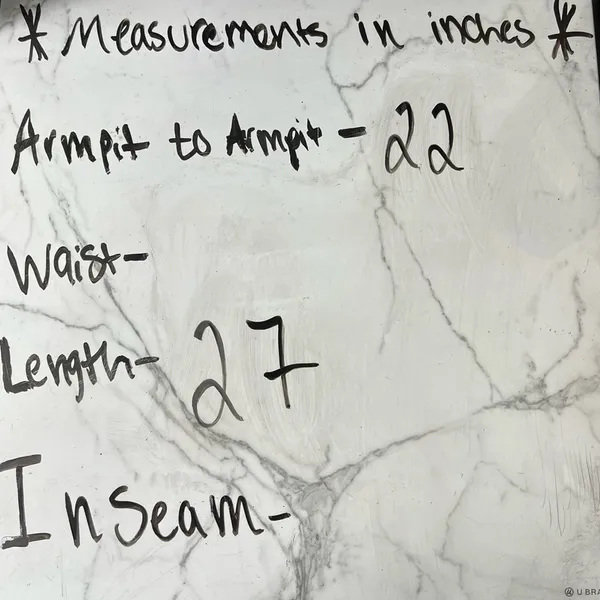 * Measurements in inches *
Armpit to Armpit - 22
Waist-
Length- 27
Inseam-
U BRA